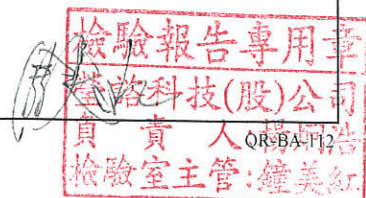 檢驗報告專用章
瑩諮科技(股)公司
負責人:
QR-BA-112
檢驗室主管:鐘美紅